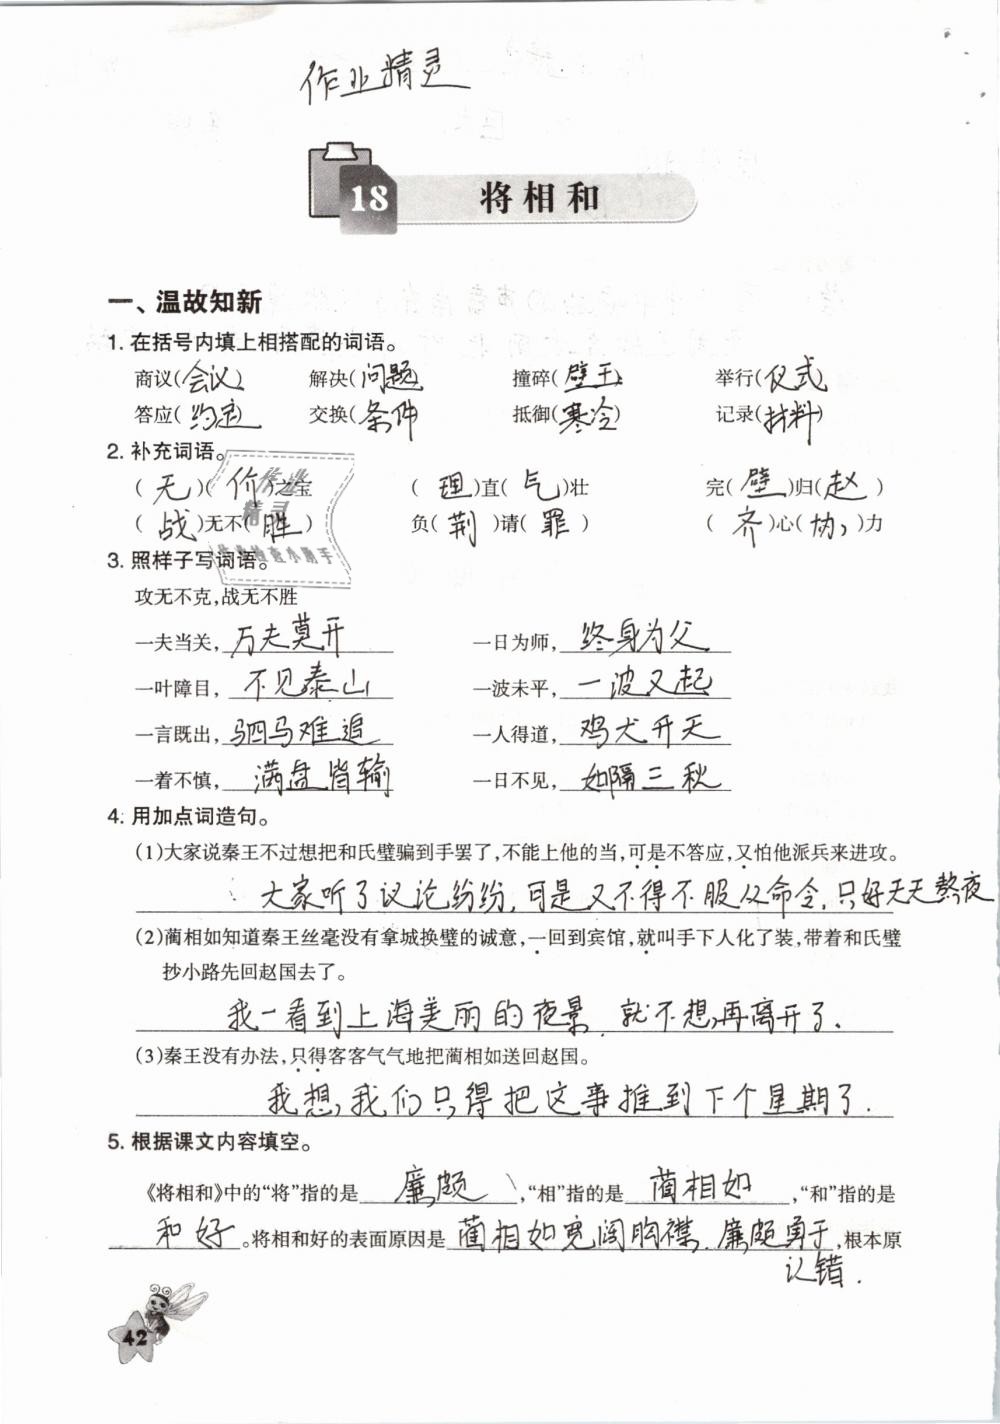 作业精灵
18 将相和
一、温故知新
1. 在括号内填上相搭配的词语。
商议(会议) 解决(问题) 撞碎(壁玉) 举行(仪式)
答应(约定) 交换(条件) 抵御(寒冷) 记录(材料)
2. 补充词语。
(无)(价)之宝 (理)直(气)壮 完(壁)归(赵)
(战)无不(胜) 负(荆)请(罪) (齐)心(协)力
作业
精灵
作业检查小助手
3. 照样子写词语。
攻无不克,战无不胜
一夫当关,万夫莫开 一日为师,终身为父
一叶障目,不见泰山 一波未平,一波又起
一言既出,驷马难追 一人得道,鸡犬升天
一着不慎,满盘皆输 一日不见,如隔三秋
4. 用加点词造句。
(1)大家说秦王不过想把和氏璧骗到手罢了,不能上他的当,可是不答应,又怕他派兵来进攻。
大家听了议论纷纷,可是又不得不服从命令,只好天天熬夜
(2)蔺相如知道秦王丝毫没有拿城换璧的诚意,一回到宾馆,就叫手下人化了装,带着和氏璧
抄小路先回赵国去了。
我一看到上海美丽的夜景,就不想再离开了.
(3)秦王没有办法,只得客客气气地把蔺相如送回赵国。
我想,我们只得把这事推到下个星期了.
5. 根据课文内容填空。
《将相和》中的“将”指的是 廉颇 ,“相”指的是 蔺相如 ,“和”指的是
和好 。将相和好的表面原因是 蔺相如宽阔胸襟.廉颇勇于 ,根本原
认错.
42